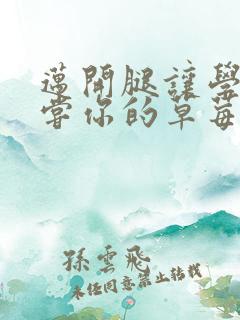 邁開腿讓學
嘗你的草莓
孫雲飛
未經同意禁止轉載